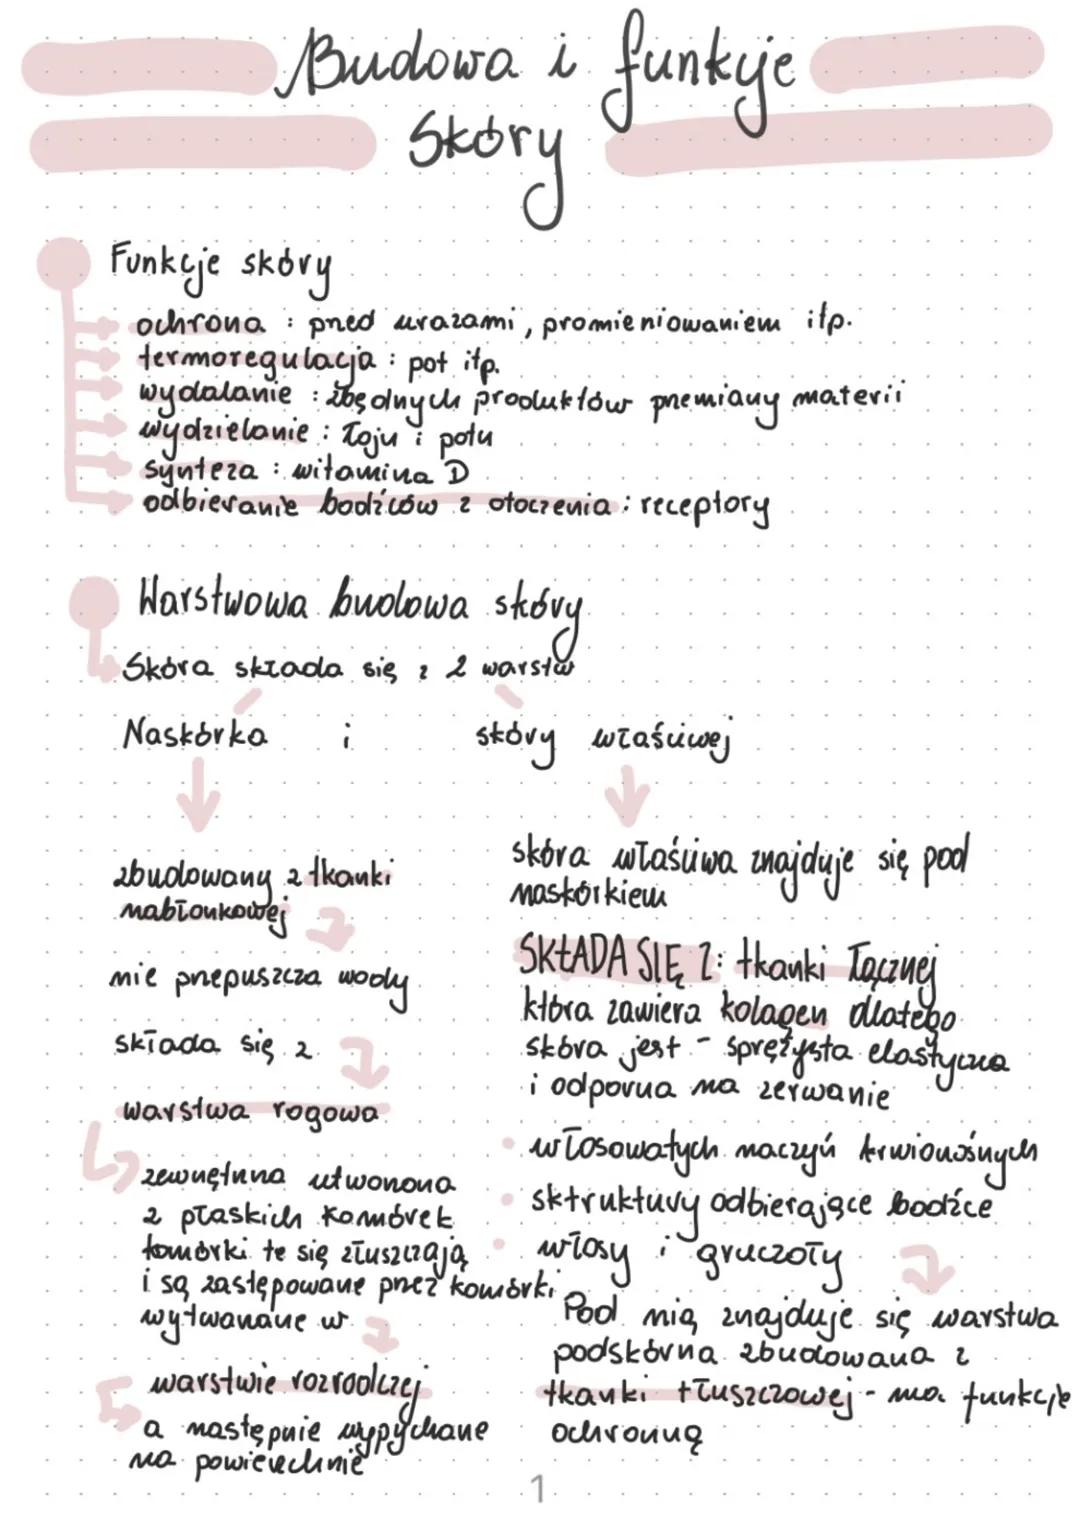 Budowa i funkcje
skóry
Funkcje skóry
ochrona : przed urazami, promieniowaniem itp.
termoregulacja : pot itp.
wydalanie : zbędnych produktów przemiany materii
wydzielanie : łoju i potu
synteza : witamina D
odbieranie bodźców z otoczenia : receptory
Warstwowa budowa skóry
Skóra składa się z 2 warstw
Naskórka i skóry właściwej
zbudowany z tkanki
nabłonkowej
nie przepuszcza wody
składa się z
warstwa rogowa
zewnętrzna utworzona
z płaskich komórek
komórki te się złuszczają
i są zastępowane przez komórki
wytwarzane w
warstwie rozrodczej
a następnie wypychane
na powierzchnię
skóra właściwa znajduje się pod
naskórkiem
SKŁADA SIĘ Z: tkanki łącznej
która zawiera kolagen dlatego
skóra jest - sprężysta elastyczna
i odporna na zerwanie
• włosowatych naczyń krwionośnych
• sktruktury odbierające bodźce
• włosy i gruczoły
Pod nią znajduje się warstwa
podskórna zbudowana z
tkanki tłuszczowej - ma funkcje
ochronną
1